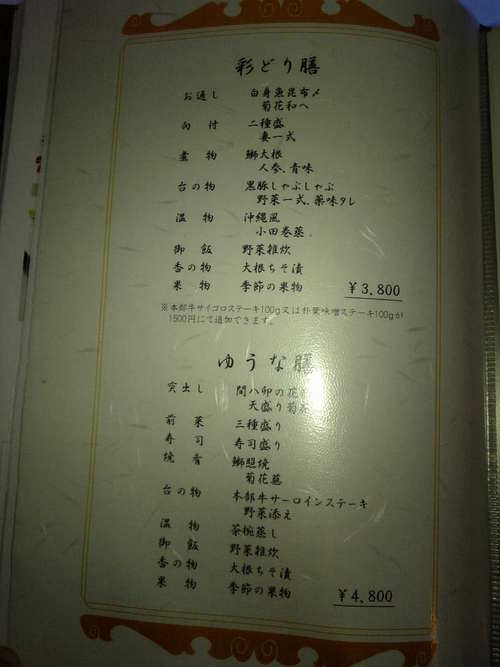 彩どり膳
お通し 白身魚昆布〆
菊花和へ
向付 二種盛
妻一式
煮物 鰤大根
人参、青味
台の物 黒豚しゃぶしゃぶ
野菜一式、薬味タレ
温物 沖縄風
小田巻蒸
御飯 野菜雑炊
香の物 大根ちそ漬
果物 季節の果物
¥3,800
※本部牛サイコロステーキ100g又は朴葉味噌ステーキ100gが
1500円にて追加できます。
ゆうな膳
突出し 間八卯の花
天盛り菊花
前菜 三種盛り
寿司 寿司盛り
焼肴 鰤照焼
菊花蕪
台の物 本部牛サーロインステーキ
野菜添え
温物 茶椀蒸し
御飯 野菜雑炊
香の物 大根ちそ漬
果物 季節の果物
¥4,800